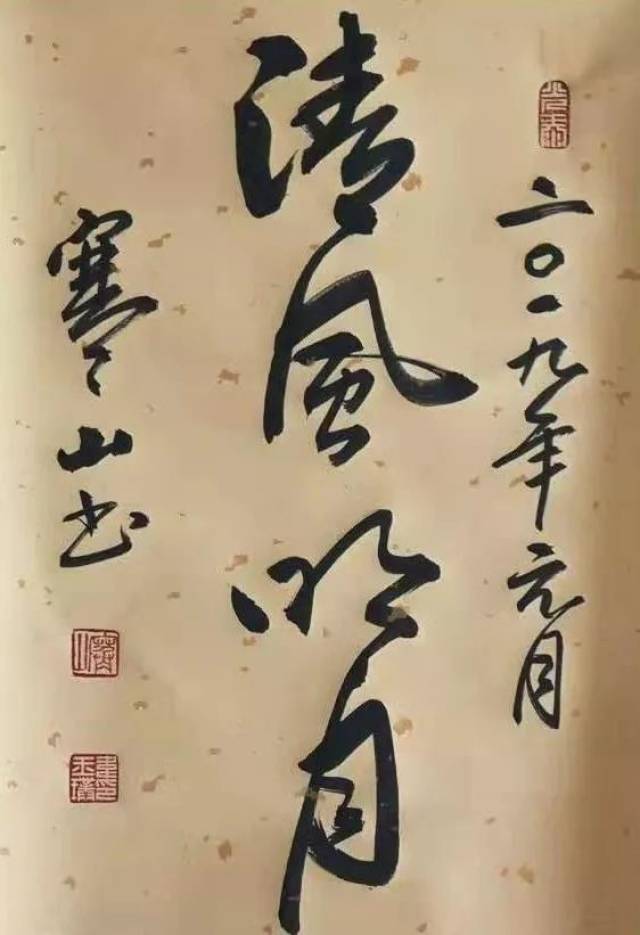 二〇一九年元月
清風明月
寒山书